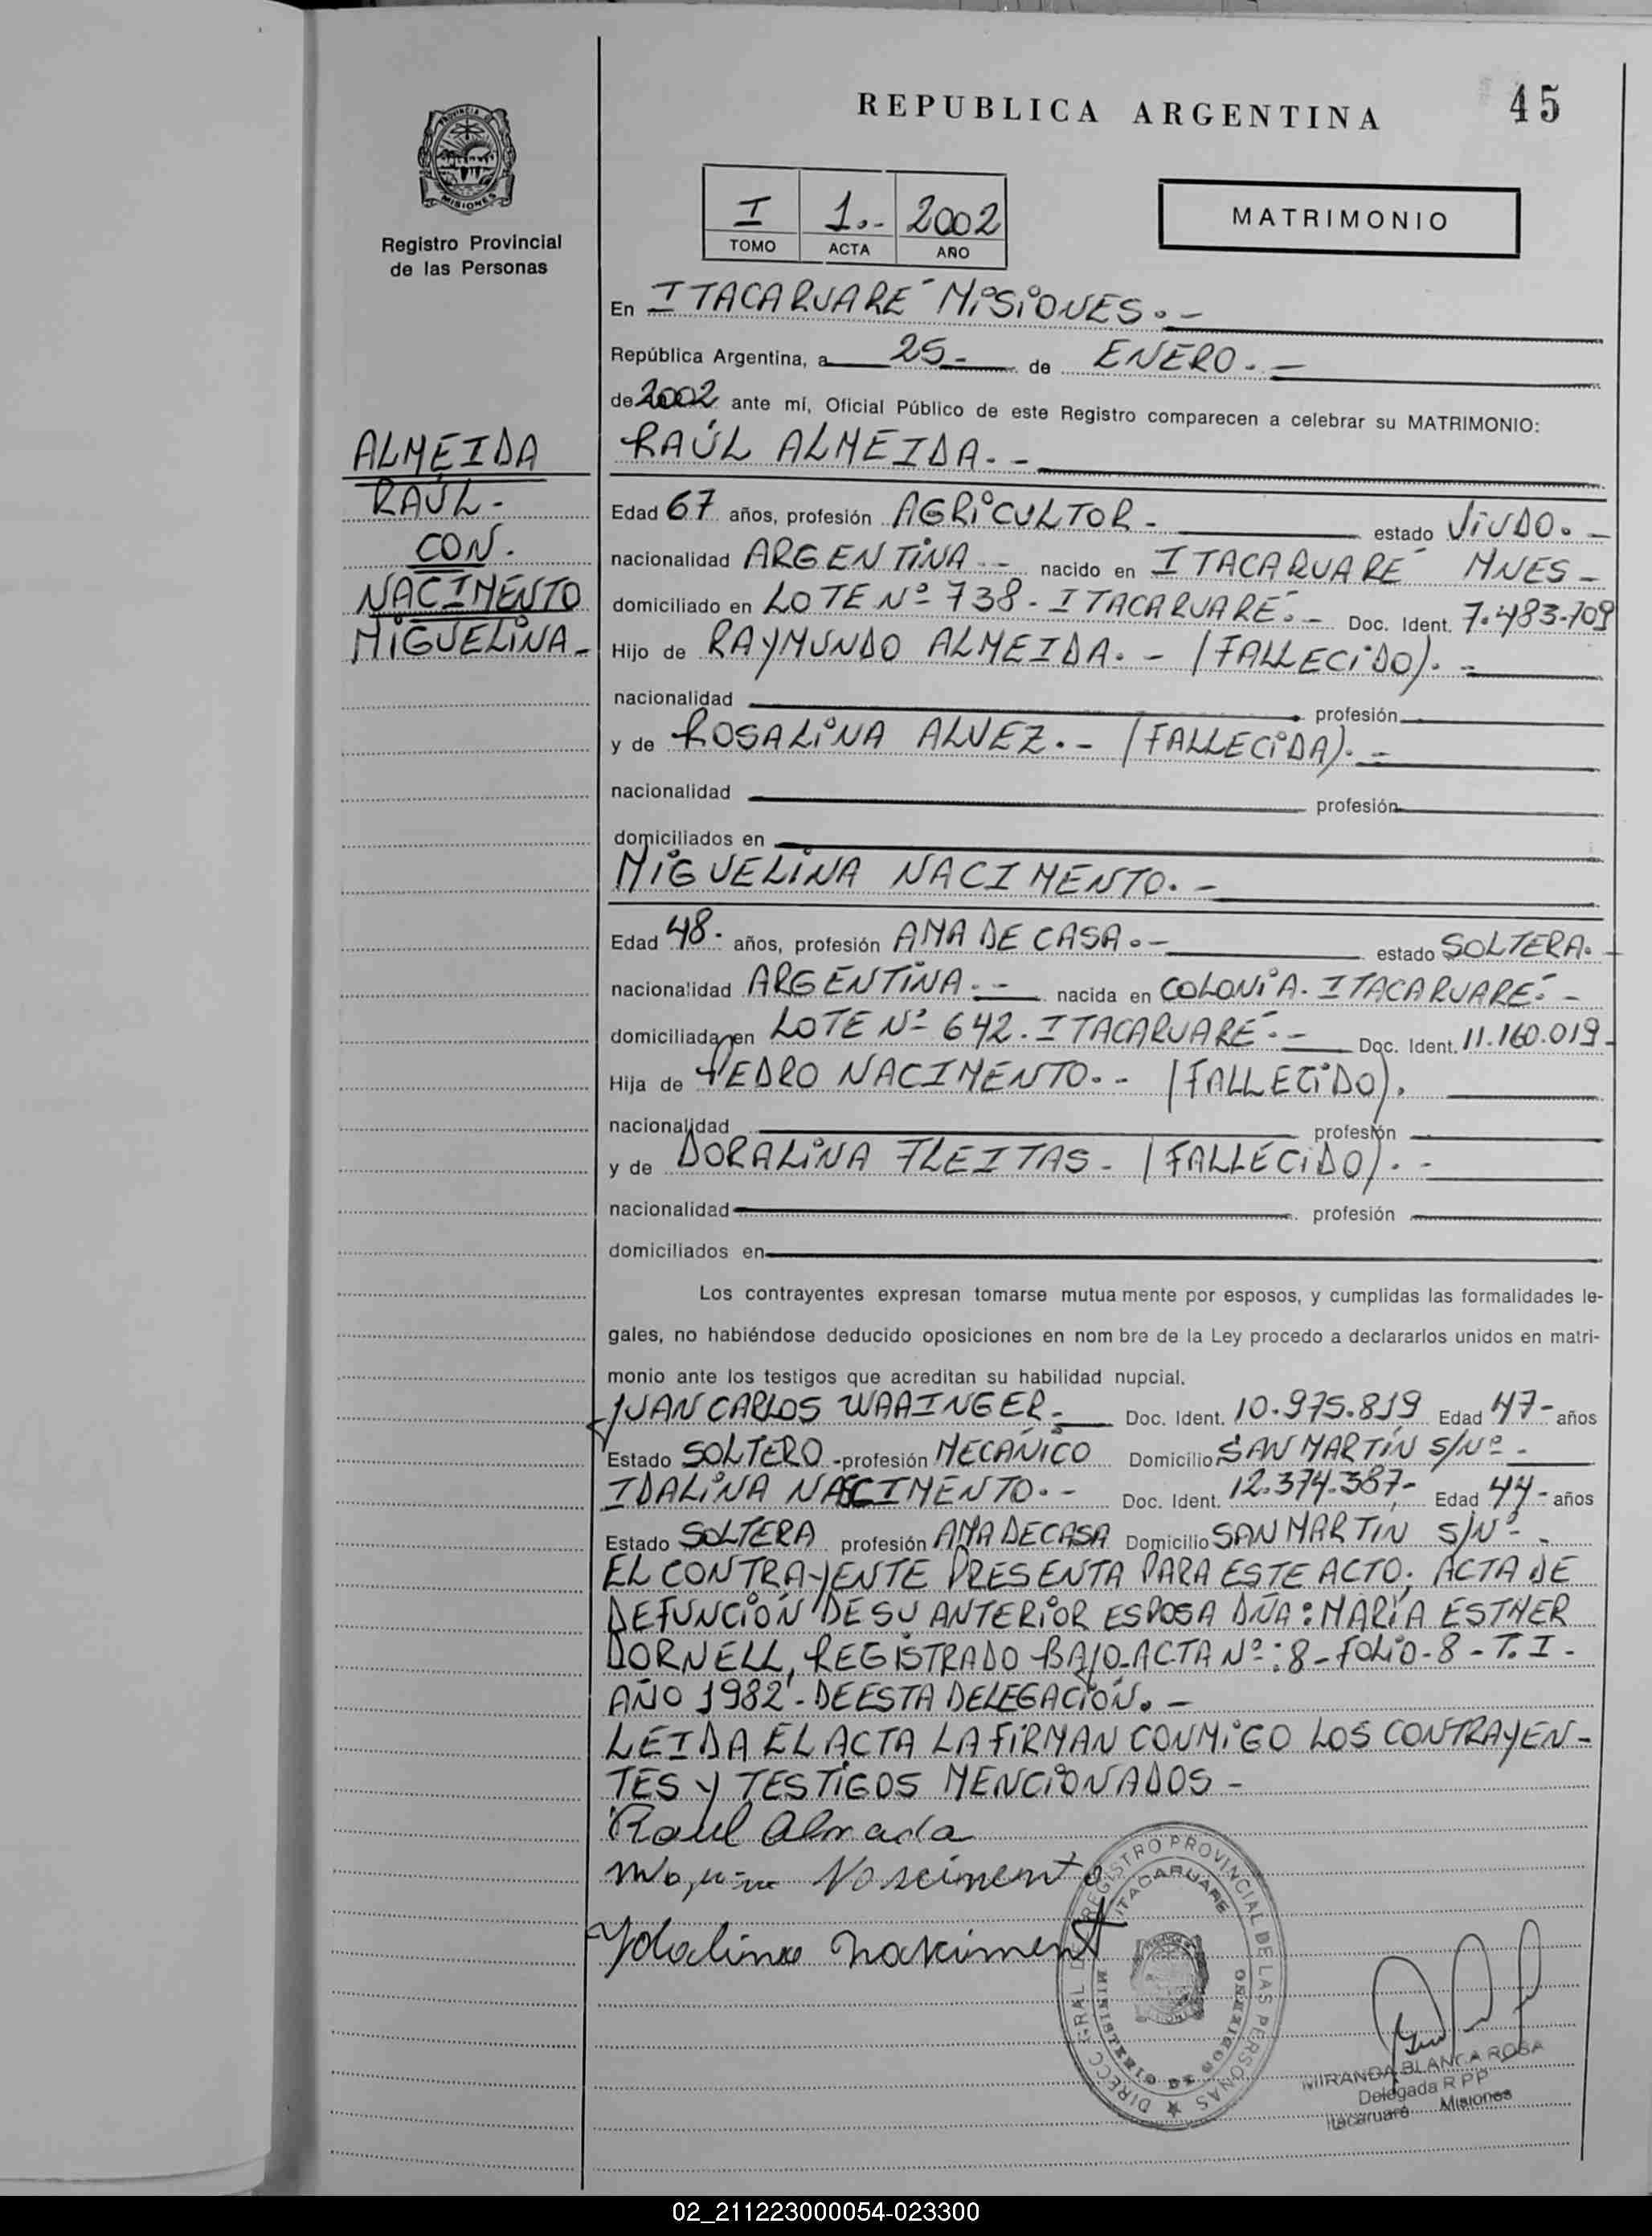 REPUBLICA ARGENTINA
45
PROVINCIA DE
MISIONES
Registro Provincial
de las Personas
I 1.- 2002
TOMO ACTA AÑO
MATRIMONIO
En ITACARUARÉ MISIONES.-
República Argentina, a 25- de ENERO.-
de 2002 ante mí, Oficial Público de este Registro comparecen a celebrar su MATRIMONIO:
ALMEIDA
RAÚL-
CON.
NACIMENTO
MIGUELINA-
RAÚL ALMEIDA.-
Edad 67 años, profesión AGRICULTOR- estado VIUDO.-
nacionalidad ARGENTINA.- nacido en ITACARUARÉ MNES-
domiciliado en LOTE Nº 738-ITACARUARÉ.- Doc. Ident. 7.483.709
Hijo de RAYMUNDO ALMEIDA.- (FALLECIDO).-
nacionalidad profesión
y de ROSALINA ALVEZ.- (FALLECIDA).-
nacionalidad profesión
domiciliados en
MIGUELINA NACIMENTO.-
Edad 48. años, profesión AMA DE CASA.- estado SOLTERA.-
nacionalidad ARGENTINA.- nacida en COLONIA. ITACARUARÉ.-
domiciliada en LOTE Nº 642. ITACARUARÉ.- Doc. Ident. 11.160.019-
Hija de PEDRO NACIMENTO.- (FALLECIDO).
nacionalidad profesión
y de DORALINA FLEITAS- (FALLECIDO).-
nacionalidad profesión
domiciliados en
Los contrayentes expresan tomarse mutua mente por esposos, y cumplidas las formalidades le-
gales, no habiéndose deducido oposiciones en nom bre de la Ley procedo a declararlos unidos en matri-
monio ante los testigos que acreditan su habilidad nupcial.
JUAN CARLOS WAAINGER- Doc. Ident. 10.975.819 Edad 47- años
Estado SOLTERO -profesión MECANICO Domicilio SAN MARTÍN S/Nº-
IDALINA NASCIMENTO.- Doc. Ident. 12.374.387- Edad 44- años
Estado SOLTERA profesión AMA DE CASA Domicilio SAN MARTIN S/Nº-
EL CONTRAYENTE PRESENTA PARA ESTE ACTO; ACTA DE
DEFUNCIÓN DE SU ANTERIOR ESPOSA DÑA: MARÍA ESTHER
DORNELL, REGISTRADO BAJO-ACTA Nº: 8-FOLIO-8-T.I-
AÑO 1982-DE ESTA DELEGACIÓN.-
LEIDA EL ACTA LA FIRMAN CONMIGO LOS CONTRAYEN-
TES Y TESTIGOS MENCIONADOS-
Raul
Nascimento
Ydalina
DIRECC. GRAL. DE REGISTRO PROVINCIAL DE LAS PERSONAS
ITACARUARE
MINISTERIO DE GOBIERNO
MIRANDA BLANCA ROSA
Delegada R P P
Itacaruaré Misiones
02_211223000054-023300